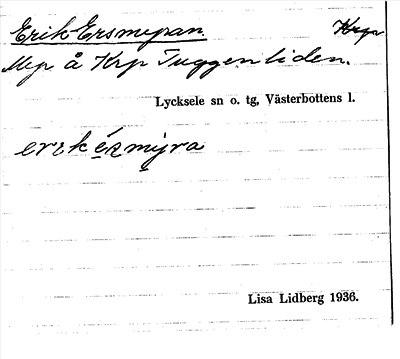 Erik-Ersmyran. Krp
Myr å Krp Tuggenliden.
Lycksele sn o. tg, Västerbottens l.
erɩk é̱ṣmyra
Lisa Lidberg 1936.